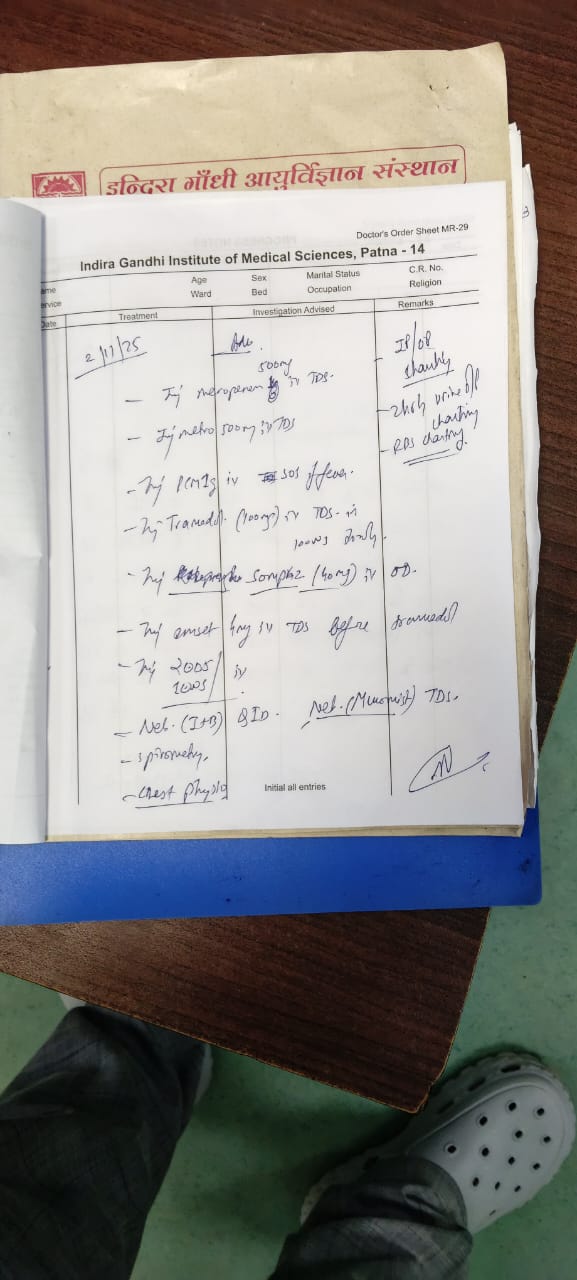 इन्दिरा गाँधी आयुर्विज्ञान संस्थान
Doctor's Order Sheet MR-29
Indira Gandhi Institute of Medical Sciences, Patna - 14
ame Age Sex Marital Status C.R. No.
ervice Ward Bed Occupation Religion
Date Treatment Investigation Advised Remarks
2/11/25 Adv.
- Inj meropenem 500mg iv TDS.
- Inj metro 500mg iv TDS
- Inj PCM 1g iv SOS if fever.
- Inj Tramadol (100mg) iv TDS in
100ns
- Inj Sompraz (40mg) iv OD.
- Inj emset 4mg iv TDS before tramadol
- Inj iv
- Neb. (I+B) QID. Neb. (Mucomist) TDS.
- Spirometry.
- Chest physio
- IP/OP
charting
- 2hrly urine o/p
charting
- RBS charting.
Initial all entries